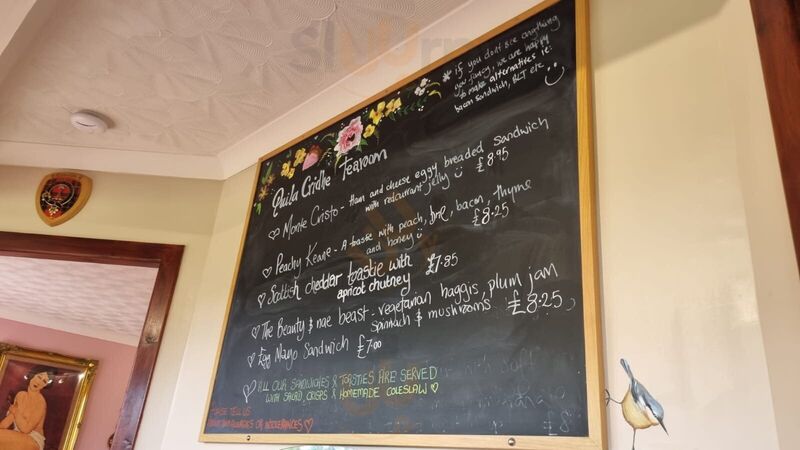 * if you dont see anything
you fancy, we are happy
to make alternatives ie:
bacon sandwich, BLT etc..
Tearoom
Monte Cristo - Ham and cheese eggy breaded sandwich
with redcurrant jelly £8.95
Peachy Keane - A toastie with peach, brie, bacon, thyme
and honey £8.25
Scottish cheddar toastie with £7.85
apricot chutney
The Beauty & nae beast - vegetarian haggis, plum jam
Spinach & mushrooms £8.25
Egg Mayo Sandwich £7.00
ALL OUR SANDWICHES & TOASTIES ARE SERVED
WITH SALAD, CRISPS & HOMEMADE COLESLAW
PLEASE TELL US
OR INTOLERANCES